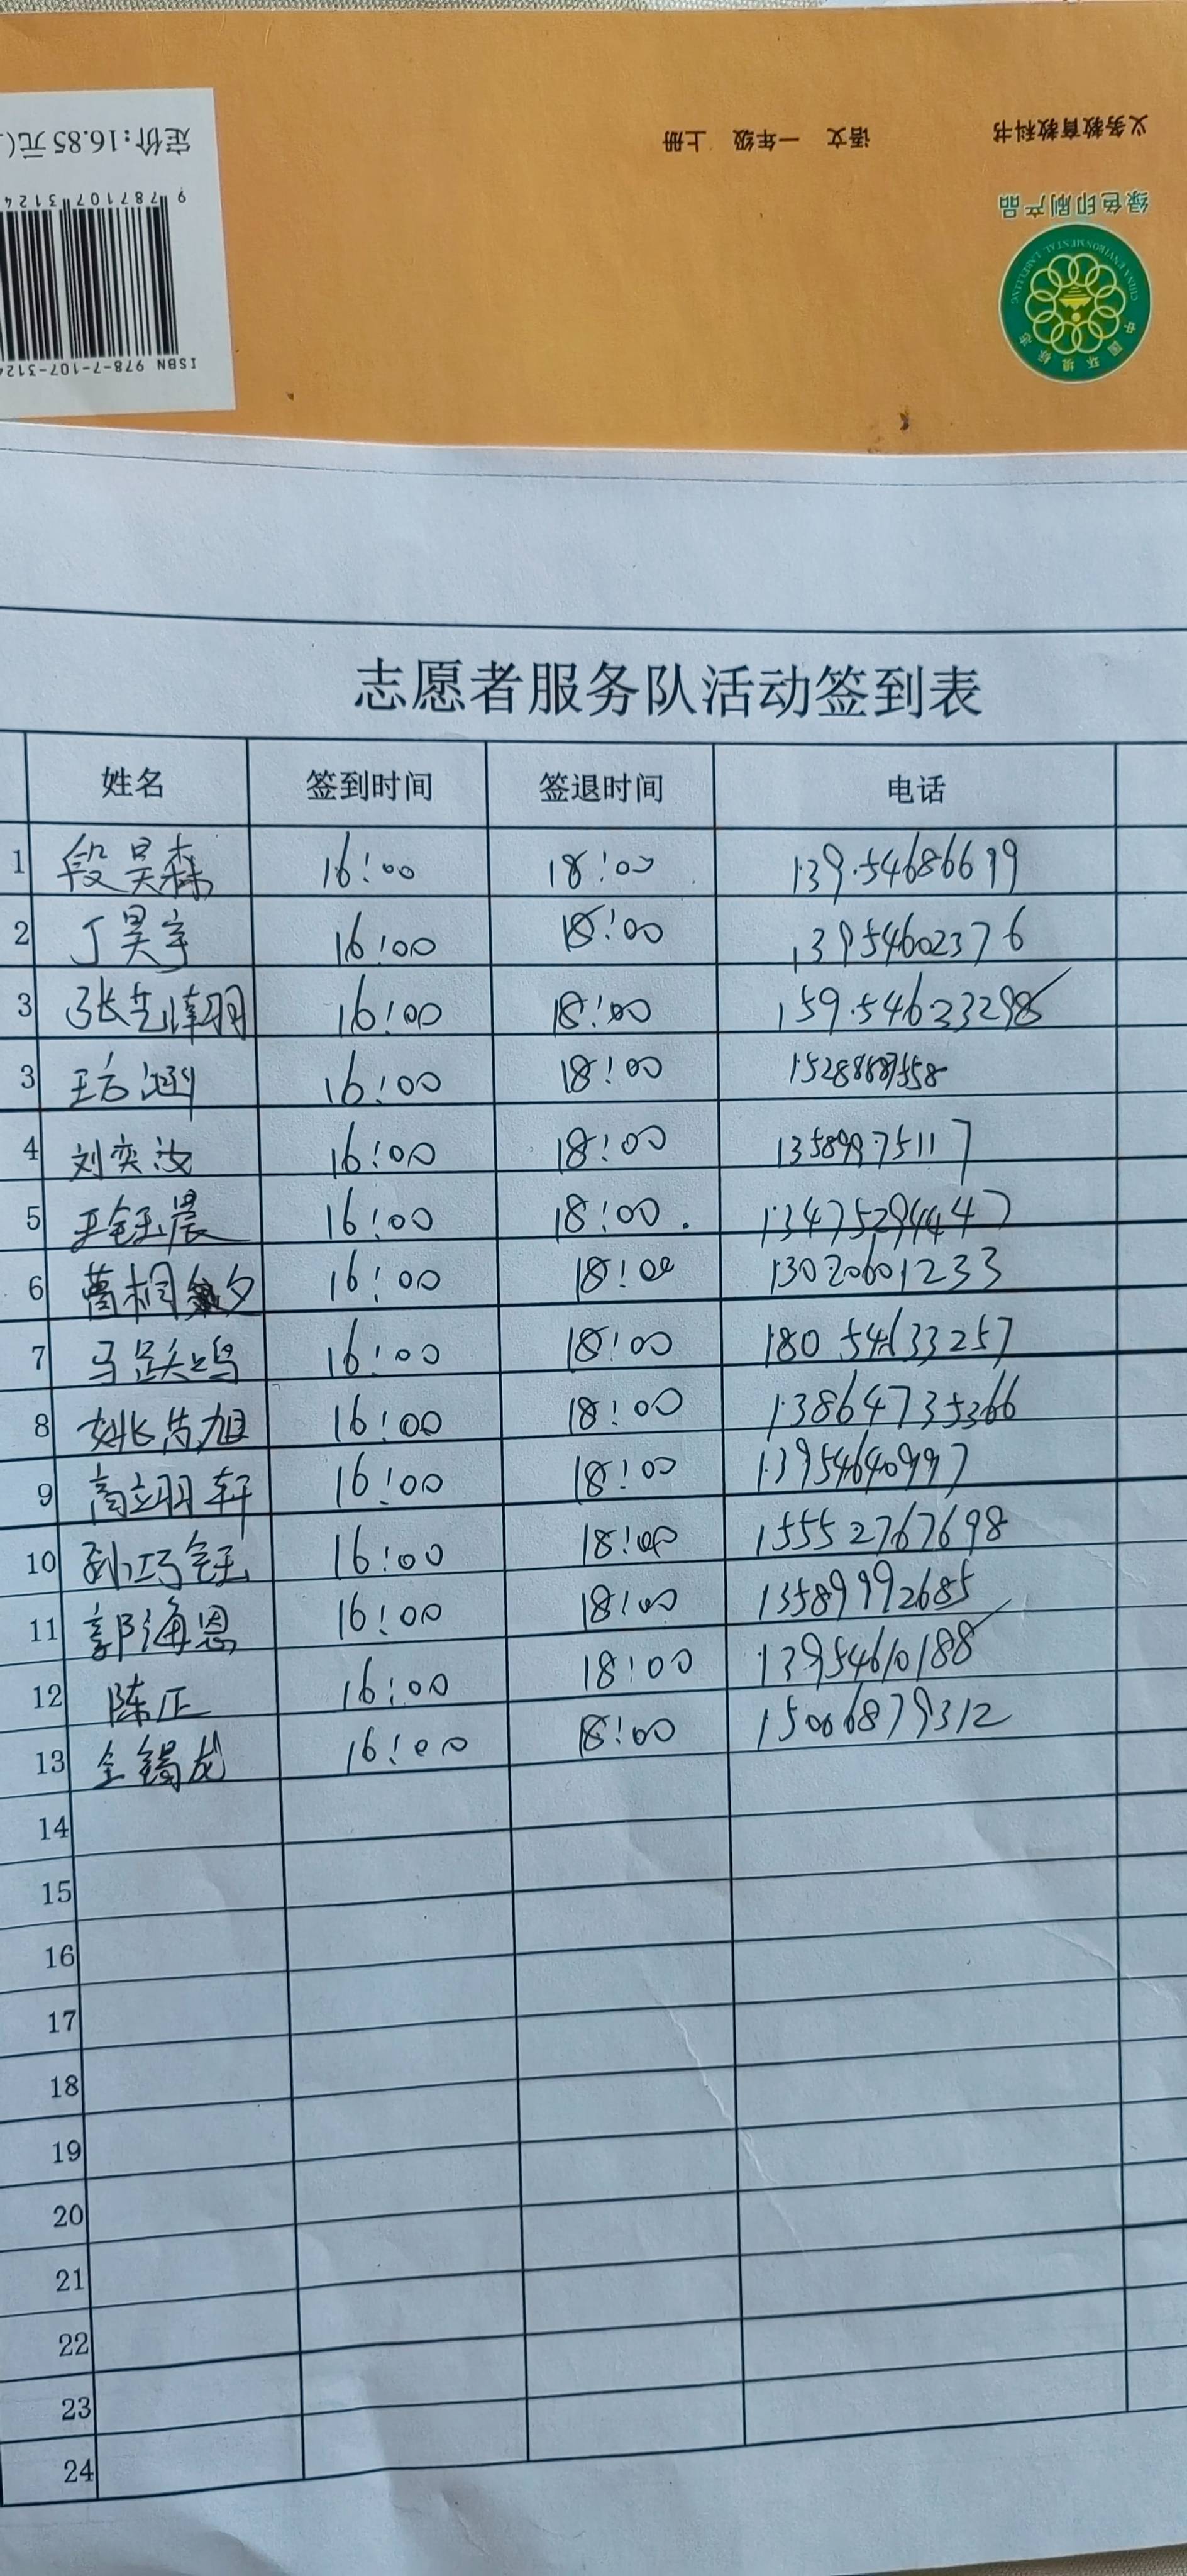 定价:16.85元(
9 787107 3124
ISBN 978-7-107-3124
义务教育教科书 语文 一年级 上册
绿色印刷产品
CHINA ENVIRONMENTAL LABELLING
中国环境标志
志愿者服务队活动签到表
姓名 签到时间 签退时间 电话
1 段昊森 16:00 18:00 13954686699
2 丁昊宇 16:00 18:00 13954602376
3 张艺潆翔 16:00 18:00 15954623298
3 16:00 18:00
4 刘奕汝 16:00 18:00 13589975117
5 王钰晨 16:00 18:00 13475294447
6 曹桐夕 16:00 18:00 13020601233
7 马跃鸣 16:00 18:00 18054633257
8 姚芮旭 16:00 18:00 13864735366
9 高翊轩 16:00 18:00 13954640997
10 孙巧钰 16:00 18:00 15552767698
11 郭海恩 16:00 18:00 13589992685
12 陈正 16:00 18:00 13954610188
13 全锡龙 16:00 18:00 15066879312
14
15
16
17
18
19
20
21
22
23
24